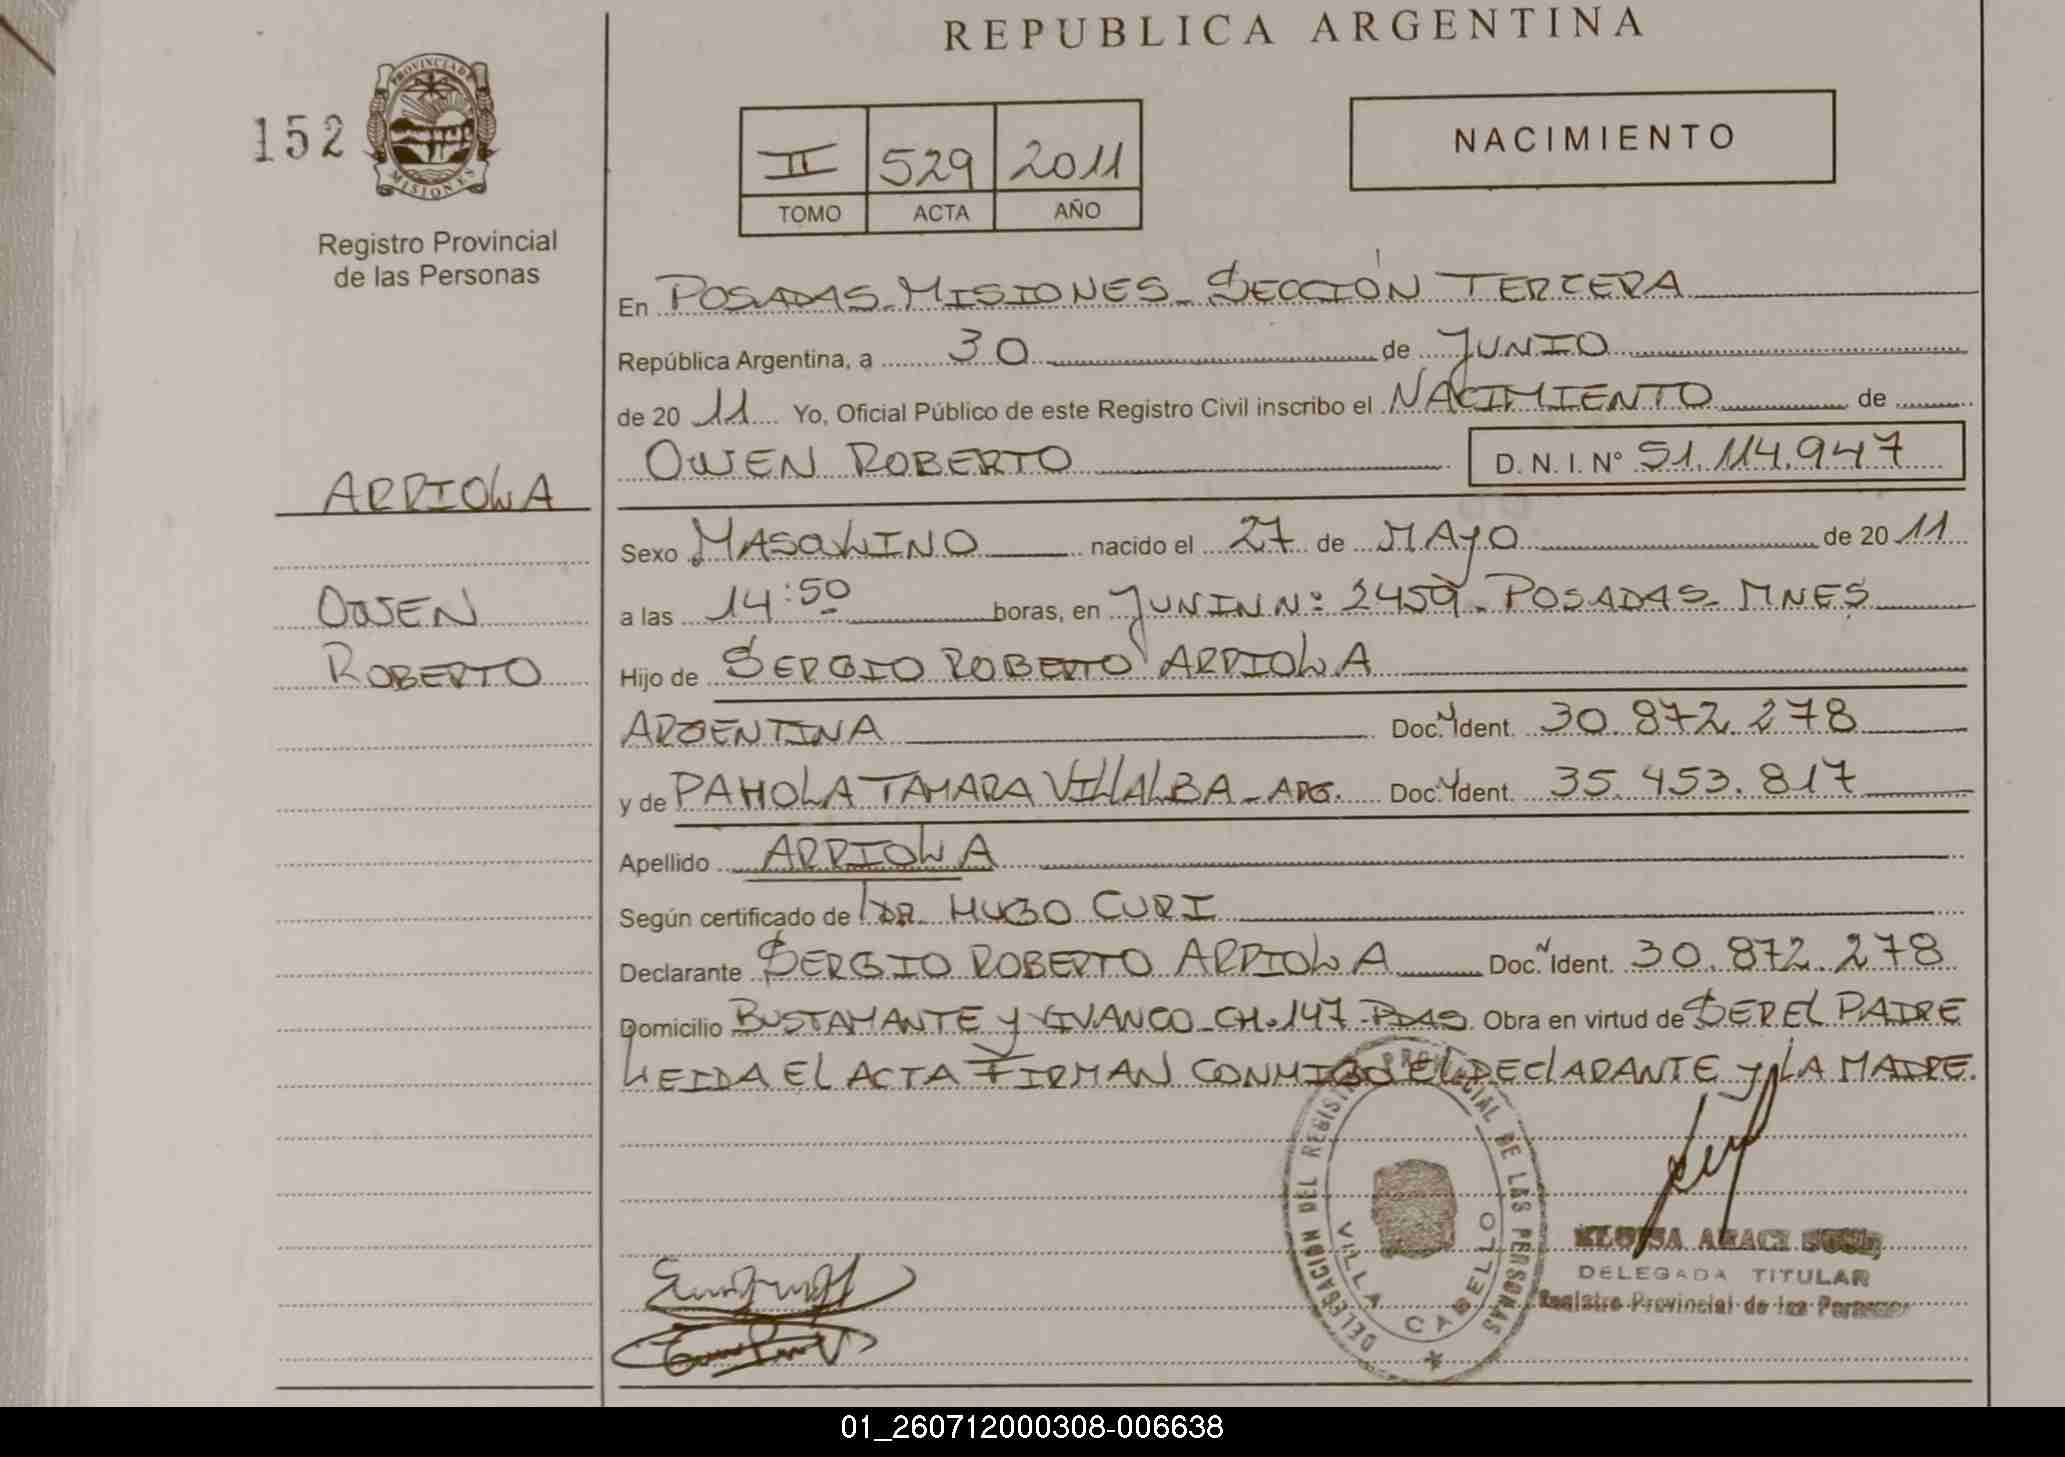 REPUBLICA ARGENTINA
152
PROVINCIA DE MISIONES
Registro Provincial
de las Personas
II 529 2011
TOMO ACTA AÑO
NACIMIENTO
En POSADAS-MISIONES-SECCIÓN TERCERA
República Argentina, a 30 de JUNIO
de 20 11 Yo, Oficial Público de este Registro Civil inscribo el NACIMIENTO de
OWEN ROBERTO D. N. I. Nº 51.114.947
ARRIOLA
OWEN
ROBERTO
Sexo MASCULINO nacido el 27 de MAYO de 20 11
a las 14:50 horas, en JUNIN Nº 2459-POSADAS-MNES
Hijo de SERGIO ROBERTO ARRIOLA
ARGENTINA Doc. Ident. 30.872.278
y de PAHOLA TAMARA VILLALBA-ARG. Doc. Ident. 35.453.817
Apellido ARRIOLA
Según certificado de DR. HUGO CURI
Declarante SERGIO ROBERTO ARRIOLA Doc. Ident. 30.872.278
Domicilio BUSTAMANTE Y VIVANCO-CH.147-PDAS Obra en virtud de SER EL PADRE
LEIDA EL ACTA FIRMAN CONMIGO EL DECLARANTE Y LA MADRE.
DELEGACION DEL REGISTRO PROVINCIAL DE LAS PERSONAS
VILLA CABELLO
DELEGADA TITULAR
Registro Provincial de las Personas
01_260712000308-006638